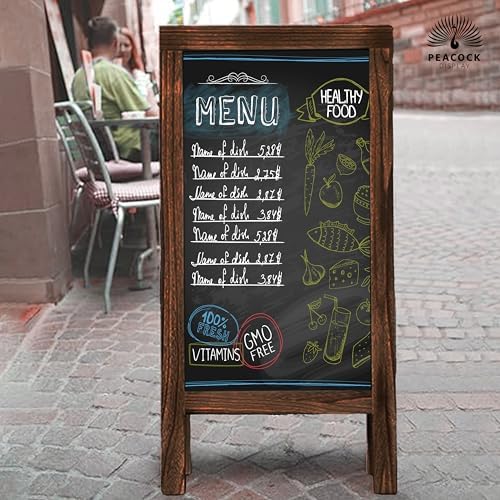 PEACOCK
DISPLAY
MENU
HEALTHY
FOOD
Name of dish 5,28$
Name of dish 2,75$
Name of dish 2,87$
Name of dish 3,84$
Name of dish 5,28$
Name of dish 2,87$
Name of dish 3,84$
100%
FRESH
VITAMINS
GMO
FREE